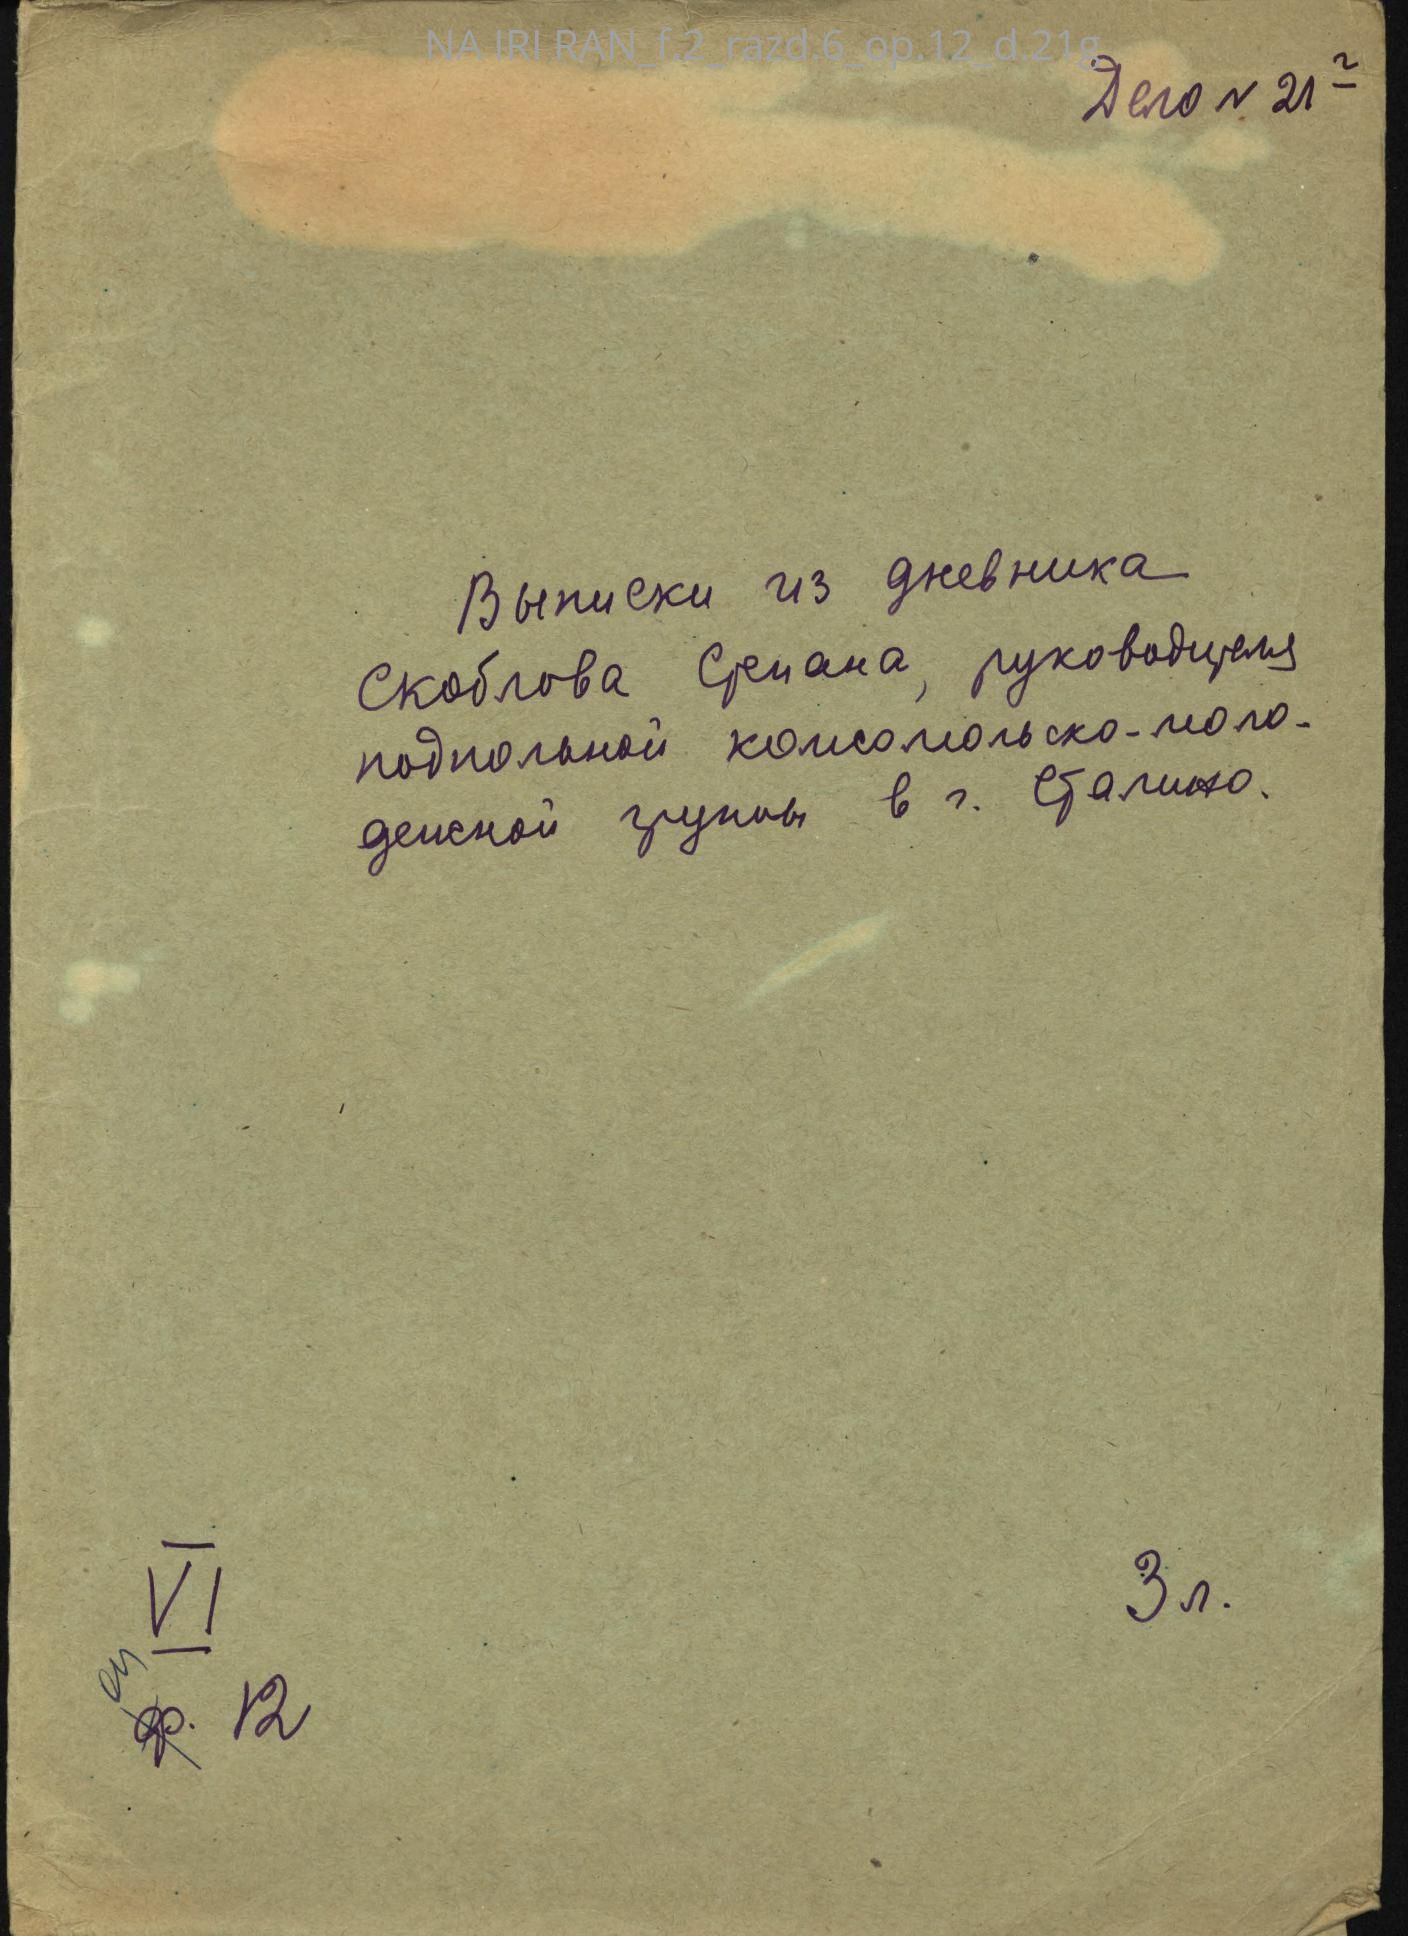 NA IRI RAN_f.2_razd.6_op.12_d.21g
Дело № 21г
Выписки из дневника
Скоблова Степана, руководителя
подпольной комсомольско-моло-
дежной группы в г. Сталино.
VI
3 л.
оп
ф. 12